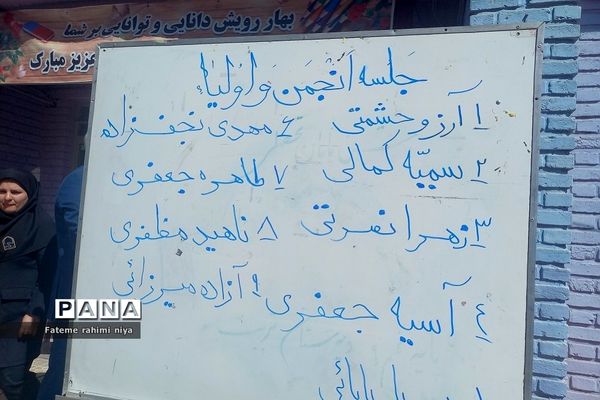 بهار رویش دانایی و توانایی بر شما
عزیز مبارک
جلسه انجمن و اولیاء
۱ آرزو حشمتی ۶ مهدی نجف زاده
۲ سمیّه کمالی ۷ طاهره جعفری
۳ زهرا نصرتی ۸ ناهید مظفری
۴ آسیه جعفری ۹ آزاده میرزائی
بابائی
PANA
Fateme rahimi niya